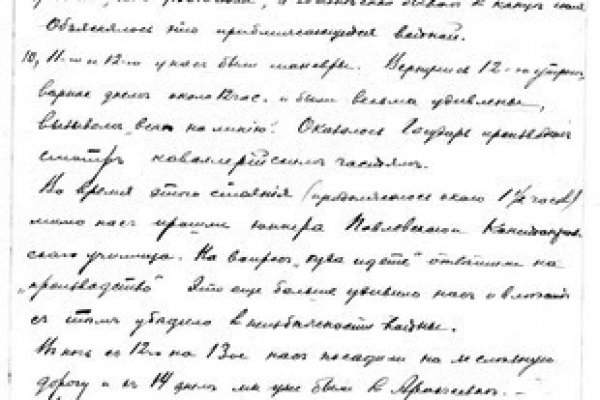 Объяснялось это приближающейся войной.
10, 11-го и 12-го у нас были маневры. Вернулись 12-го утром,
вернее днем около 12 час. и были весьма удивлены,
вызовом „всех на линию". Оказалось Государь производит
смотр кавалерийским частям.
Во время этого стояния (продолжалось около 1½ часов)
мимо нас прошли юнкера Павловского
училища. На вопрос „куда идете" ответили на
„производство" Это еще больше удивило нас и
с этим убедило в неизбежности войны.
В ночь с 12-го на 13-ое нас посадили на железную
дорогу и в 14 днем мы уже были в